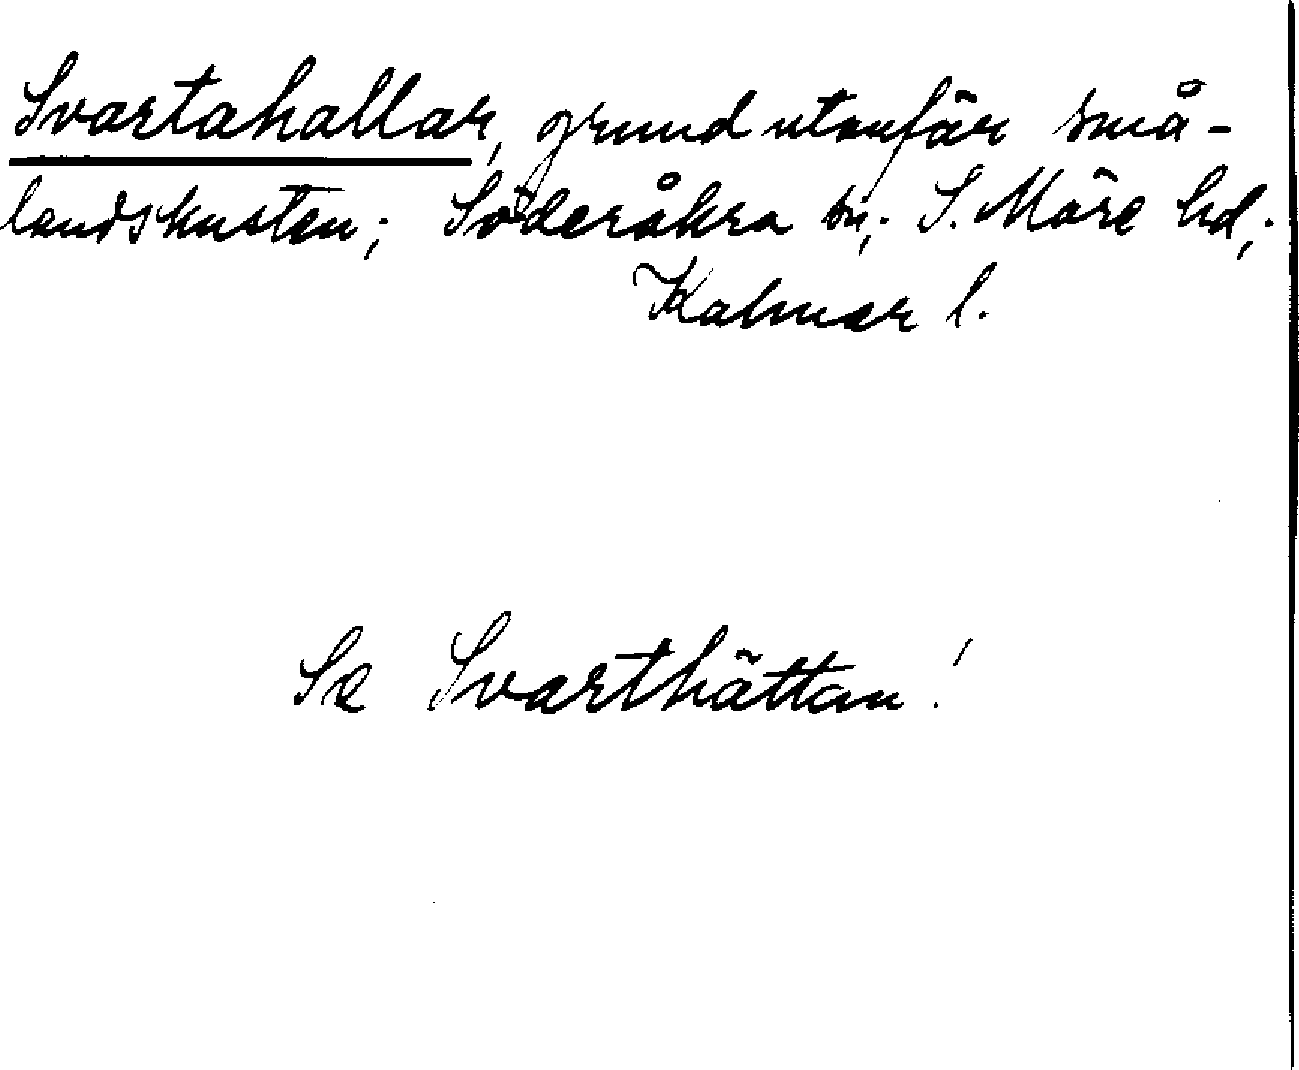 Svartahallar, grund utanför små-
landskusten; Söderåkra sn; S. Möre hd;
Kalmar l.
Se Svarthättan!